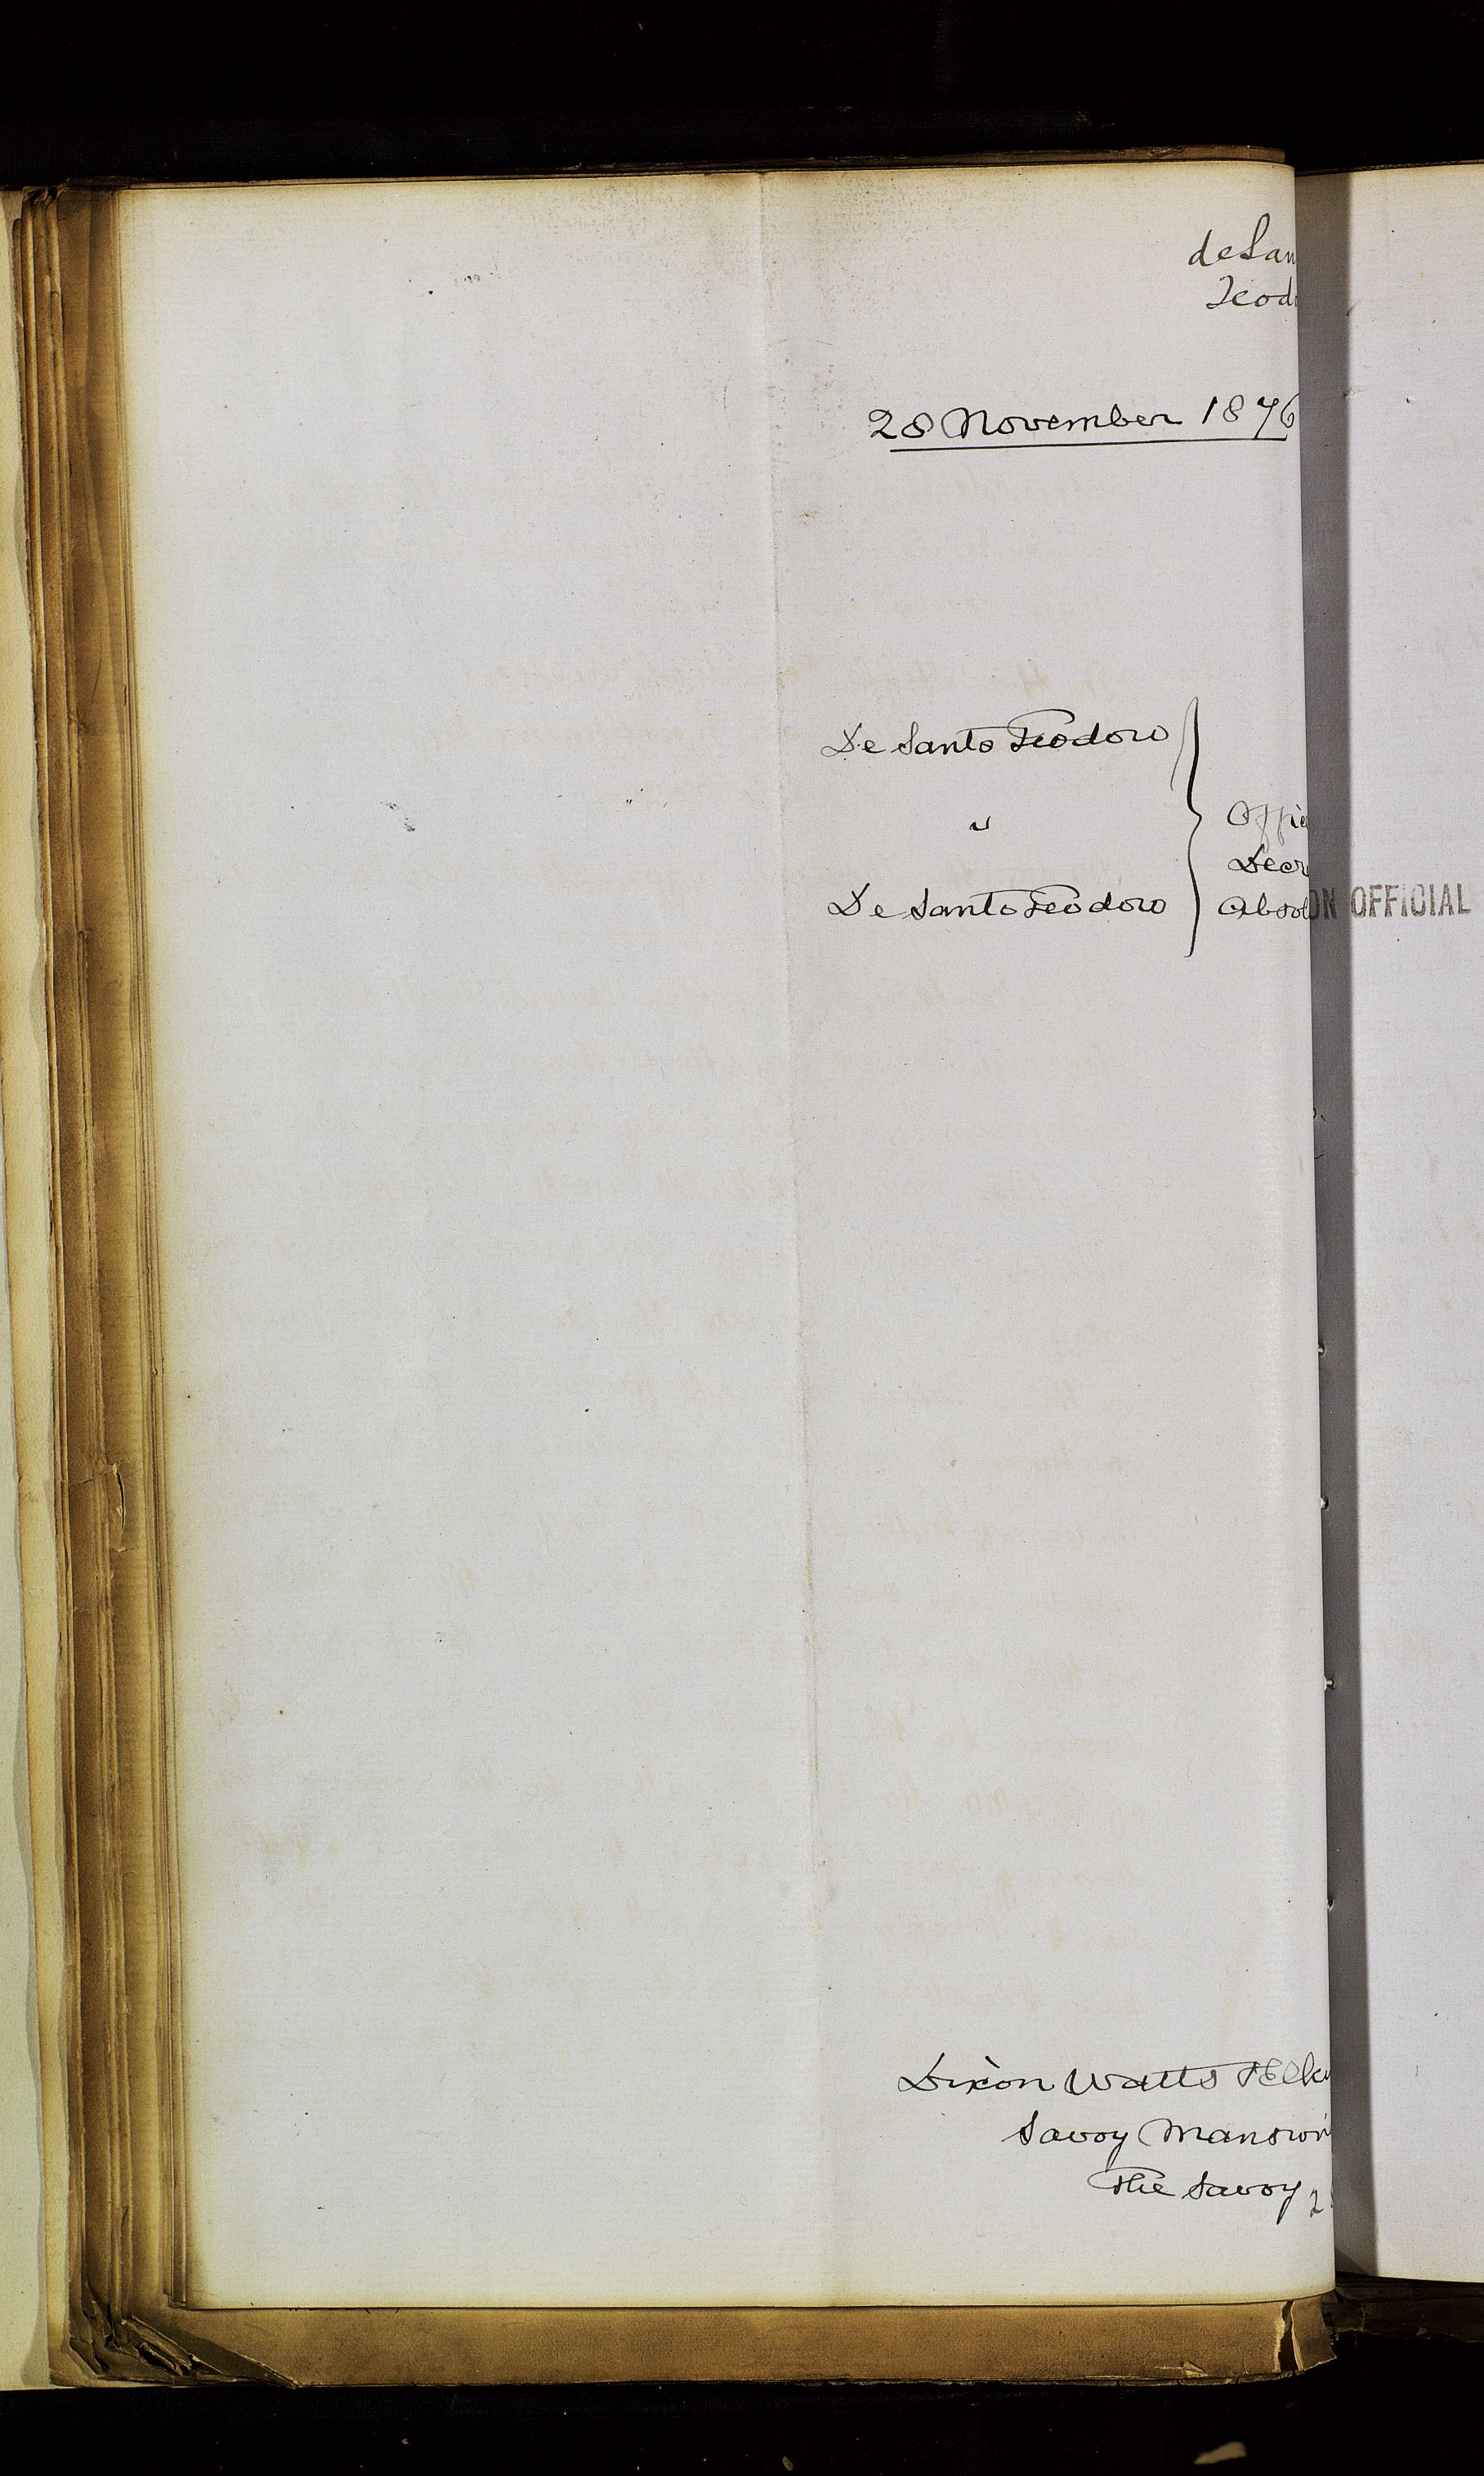 de San
Teod
28 November 1876
De Santo Teodoro
"
De Santo Teodoro
Offic
Decr
Absol
ON OFFICIAL
Dixon Watts & Elk
Savoy Mansion
The Savoy 2